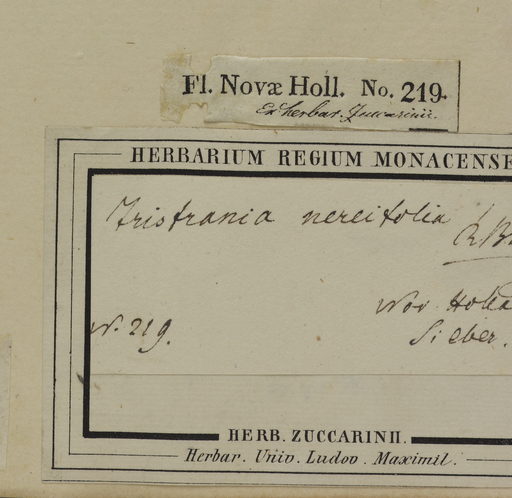 Fl. Novæ Holl. No. 219.
Ex herbar. Zuccarinii.
HERBARIUM REGIUM MONACENSE
Tristania nereifolia
RBr
Nov Holla
N. 219.
Sieber.
HERB. ZUCCARINII.
Herbar. Univ. Ludov. Maximil.